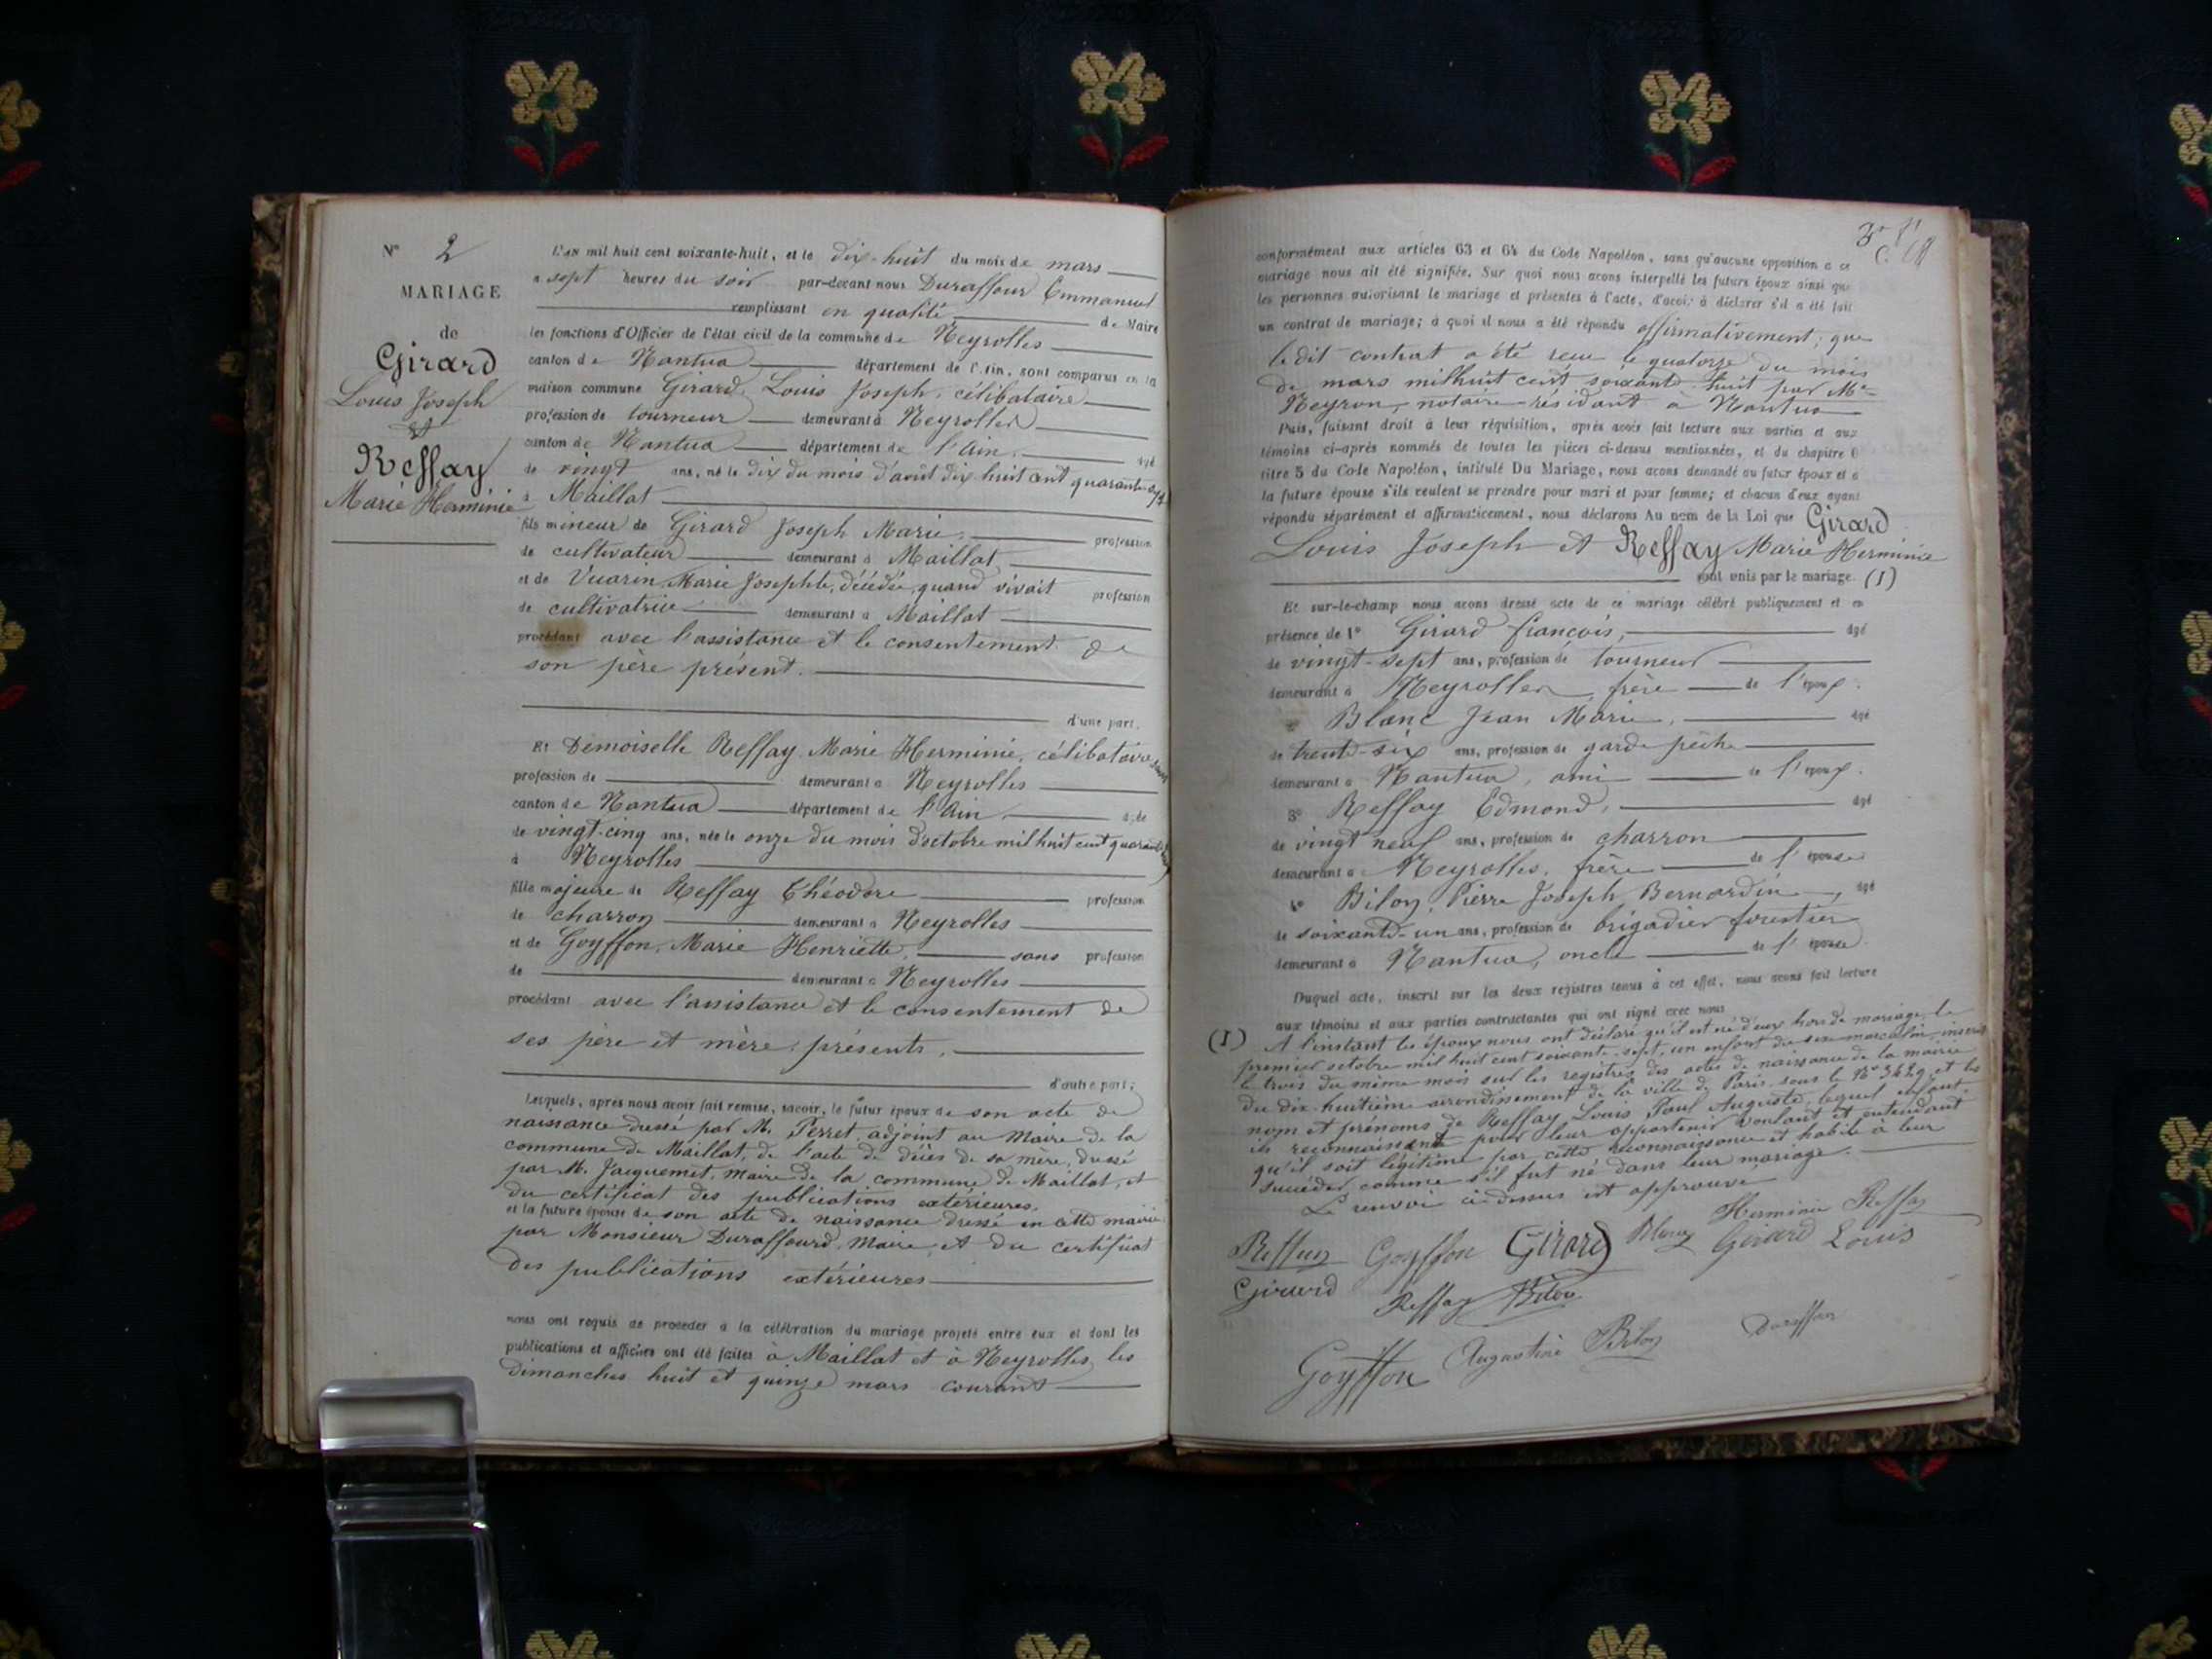 N° 2
MARIAGE
de
Girard
Louis Joseph
et
Reffay
Marie Herminie
L'an mil huit cent soixante-huit, et le dix-huit du mois de mars
à sept heures du soir par-devant nous Duraffour Emmanuel
remplissant en qualité de Maire
les fonctions d'Officier de l'état civil de la commune de Neyrolles
canton de Nantua département de l'Ain, sont comparus en la
maison commune Girard, Louis Joseph, célibataire
profession de tourneur demeurant à Neyrolles
canton de Nantua département de l'Ain, âgé
de vingt ans, né le dix du mois d'août dix huit cent quarante sept
à Maillat
fils mineur de Girard Joseph Marie, profession
de cultivateur demeurant à Maillat
et de Vuarin, Marie Josephte, décédée, quand vivait profession
de cultivatrice demeurant à Maillat
procédant avec l'assistance et le consentement de
son père présent.
d'une part.
Et Demoiselle Reffay Marie Herminie, célibataire sans
profession de demeurant à Neyrolles
canton de Nantua département de l'Ain, âgée
de vingt-cinq ans, née le onze du mois d'octobre mil huit cent quarante
à Neyrolles
fille majeure de Reffay Théodore profession
de charron demeurant à Neyrolles
et de Goyffon, Marie Henriette, sans profession
de demeurant à Neyrolles
procédant avec l'assistance et le consentement de
ses père et mère, présents.
d'autre part;
Lesquels, après nous avoir fait remise, savoir, le futur époux de son acte de
naissance dressé par M. Perret, adjoint au Maire de la
commune de Maillat, de l'acte de décès de sa mère, dressé
par M. Jacquemet, maire de la commune de Maillat, et
du certificat des publications extérieures,
et la future épouse de son acte de naissance dressé en cette mairie
par Monsieur Duraffourd, Maire, et du certificat
des publications extérieures
nous ont requis de procéder à la célébration du mariage projeté entre eux et dont les
publications et affiches ont été faites à Maillat et à Neyrolles, les
dimanches huit et quinze mars courant
conformément aux articles 63 et 64 du Code Napoléon, sans qu'aucune opposition à ce
mariage nous ait été signifiée. Sur quoi nous avons interpellé les futurs époux ainsi que
les personnes autorisant le mariage et présentes à l'acte, d'avoir à déclarer s'il a été fait
un contrat de mariage; à quoi il nous a été répondu affirmativement, que
le dit contrat a été reçu le quatorze du mois
de mars mil huit cent soixante-huit par Me
Neyron, notaire résidant à Nantua
Puis, faisant droit à leur réquisition, après avoir fait lecture aux parties et aux
témoins ci-après nommés de toutes les pièces ci-dessus mentionnées, et du chapitre 6
titre 5 du Code Napoléon, intitulé Du Mariage, nous avons demandé au futur époux et à
la future épouse s'ils veulent se prendre pour mari et pour femme; et chacun d'eux ayant
répondu séparément et affirmativement, nous déclarons Au nom de la Loi que Girard
Louis Joseph et Reffay Marie Herminie
sont unis par le mariage. (1)
Et sur-le-champ nous avons dressé acte de ce mariage célébré publiquement et en
présence de 1° Girard François, âgé
de vingt-sept ans, profession de tourneur
demeurant à Neyrolles, frère de l'époux.
2° Blanc Jean Marie, âgé
de trente-six ans, profession de garde pêche
demeurant à Nantua, ami de l'époux.
3° Reffay Edmond, âgé
de vingt neuf ans, profession de charron
demeurant à Neyrolles, frère de l'épouse
4° Bilon, Pierre Joseph Bernardin, âgé
de soixante-un ans, profession de brigadier forestier
demeurant à Nantua, oncle de l'épouse
Duquel acte, inscrit sur les deux registres tenus à cet effet, nous avons fait lecture
aux témoins et aux parties contractantes qui ont signé avec nous
(1) A l'instant les époux nous ont déclaré qu'il est né d'eux hors de mariage, le
premier octobre mil huit cent soixante-sept, un enfant du sexe masculin, inscrit
le trois du même mois sur les registres des actes de naissance de la mairie
du dix-huitième arrondissement de la ville de Paris, sous le N° 3429 et les
nom et prénoms de Reffay Louis Paul Auguste, lequel enfant
ils reconnaissent pour leur appartenir voulant et entendant
qu'il soit légitimé par cette reconnaissance et habile à leur
succéder comme s'il fut né dans leur mariage.
Le renvoi ci-dessus est approuvé
Herminie Reffay
Reffay Goyffon Girard Blanc Girard Louis
Girard Reffay Bilon
Goyffon Augustine Bilon Duraffour